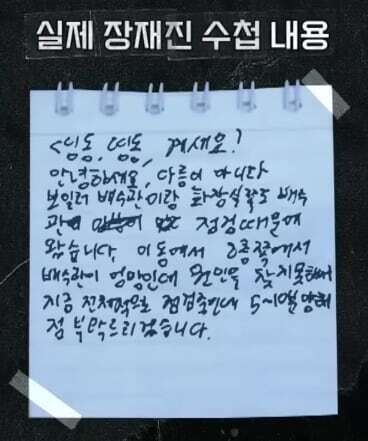 실제 장재진 수첩 내용
<띵동, 띵동, 계세요?
안녕하세요, 다름이 아니라
보일러 배수관이랑 화장실쪽도 배수
관 점검때문에
왔습니다. 이동에서 3층쪽에서
배수관이 엉망인데 원인을 찾지못해서
지금 전체적으로 점검중인데 5~10분 양해
점 부탁드리겠습니다.